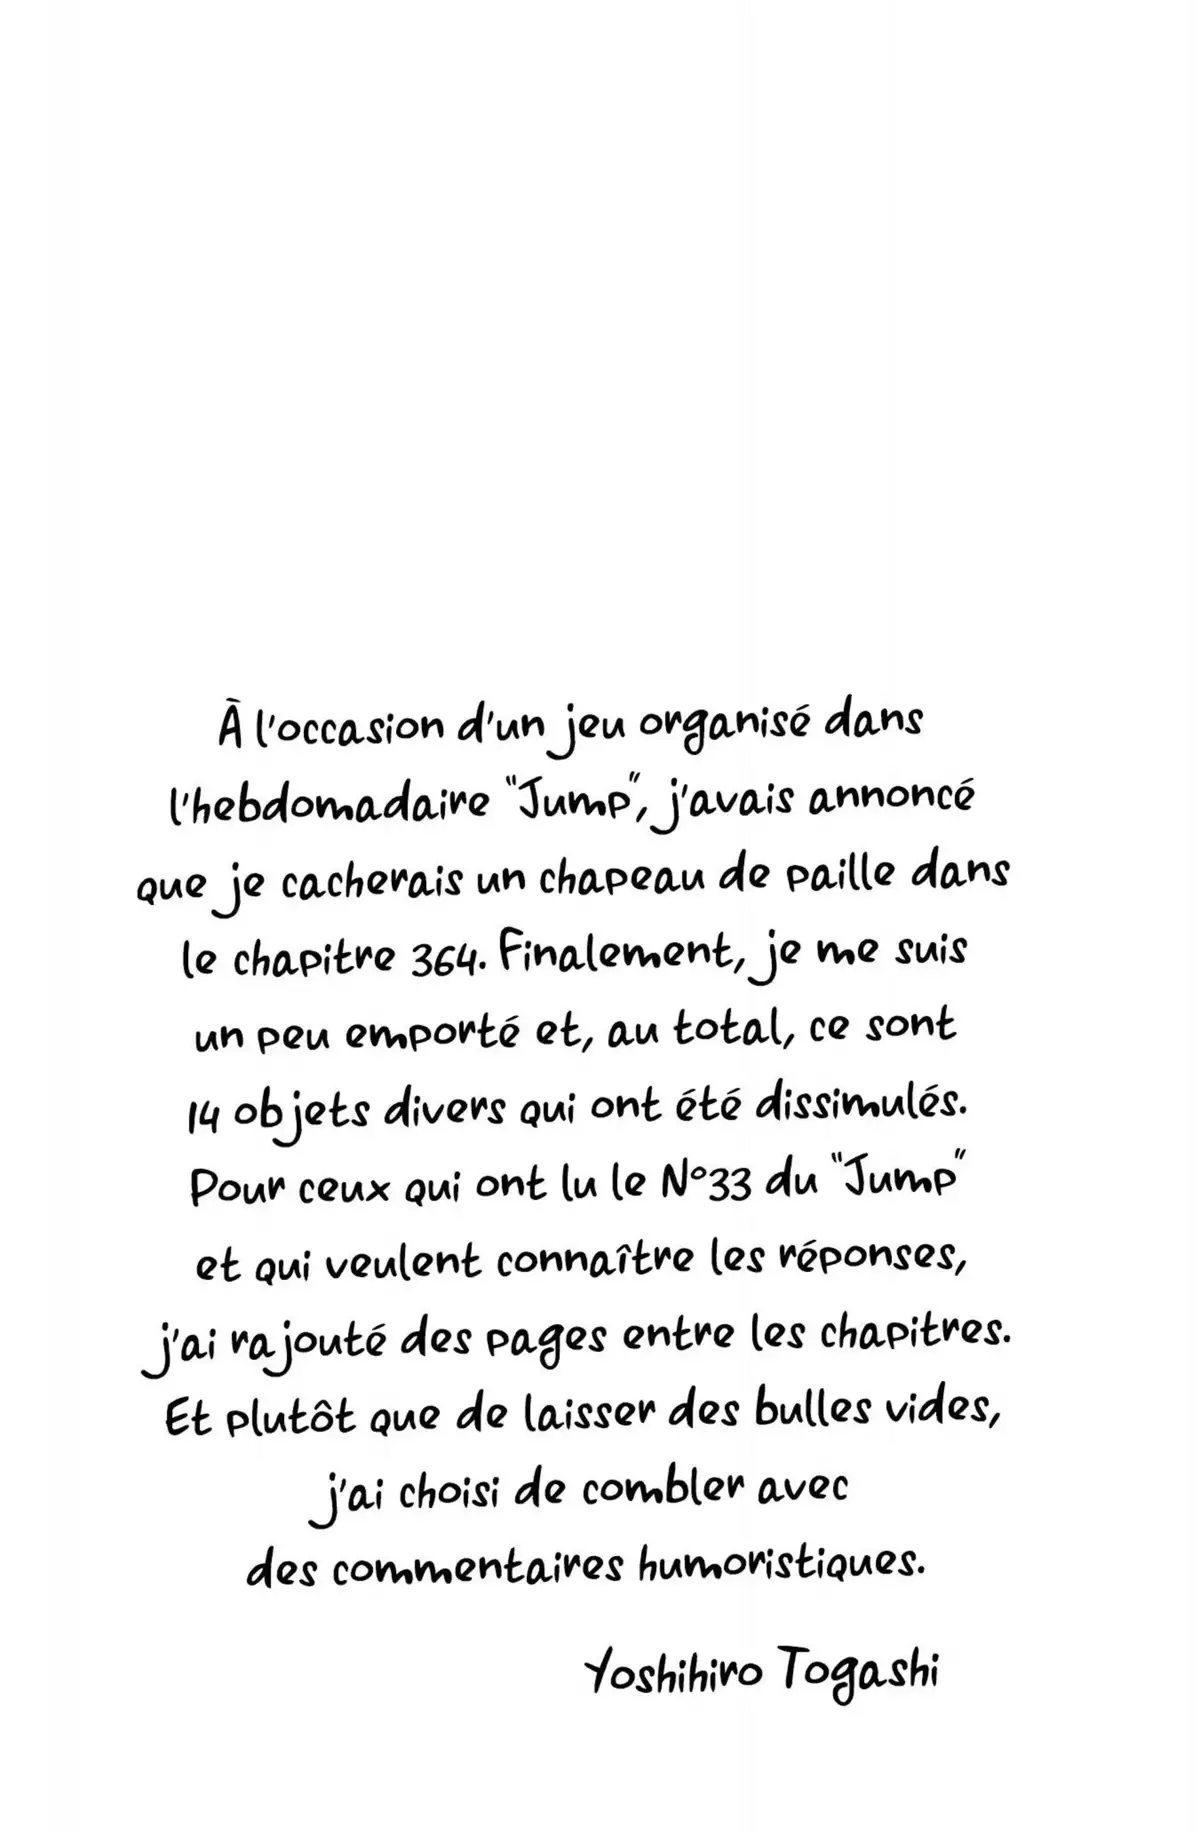 À l'occasion d'un jeu organisé dans
l'hebdomadaire "Jump", j'avais annoncé
que je cacherais un chapeau de paille dans
le chapitre 364. Finalement, je me suis
un peu emporté et, au total, ce sont
14 objets divers qui ont été dissimulés.
Pour ceux qui ont lu le N°33 du "Jump"
et qui veulent connaître les réponses,
j'ai rajouté des pages entre les chapitres.
Et plutôt que de laisser des bulles vides,
j'ai choisi de combler avec
des commentaires humoristiques.
Yoshihiro Togashi